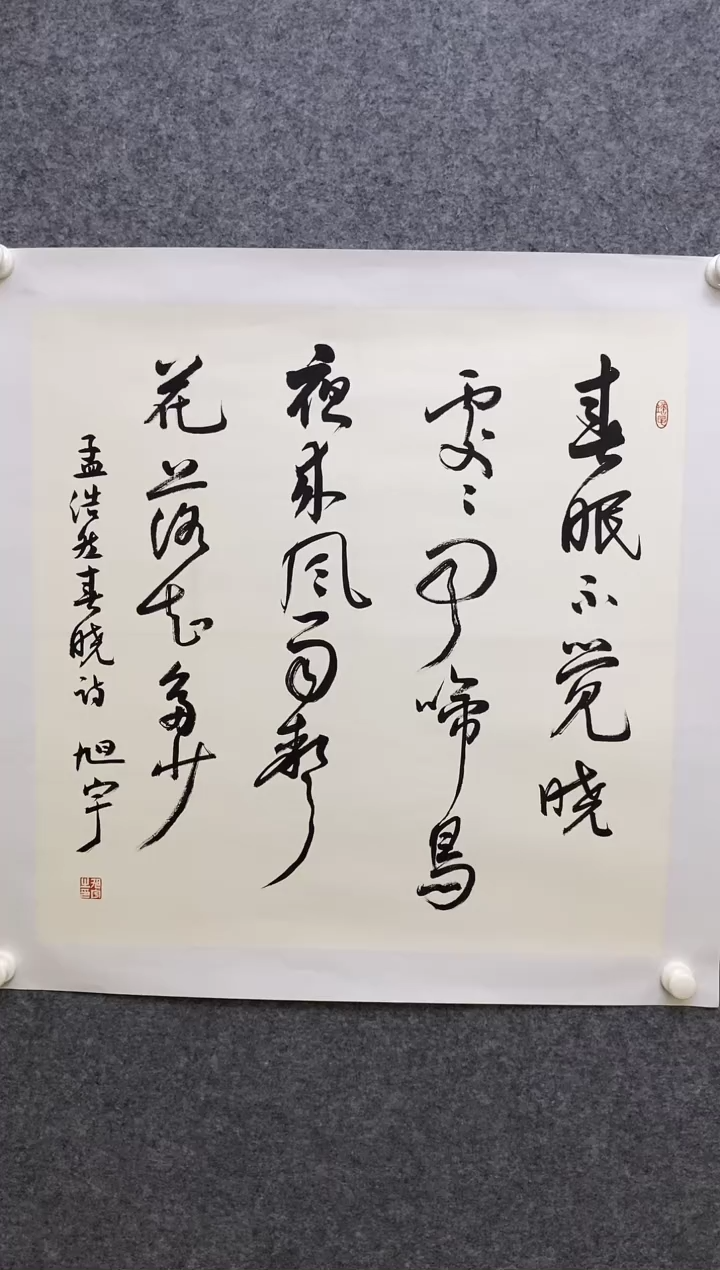 春眠不觉晓
處〻闻啼鸟
夜来风雨聲
花落知多少
孟浩然春晓诗 旭宇